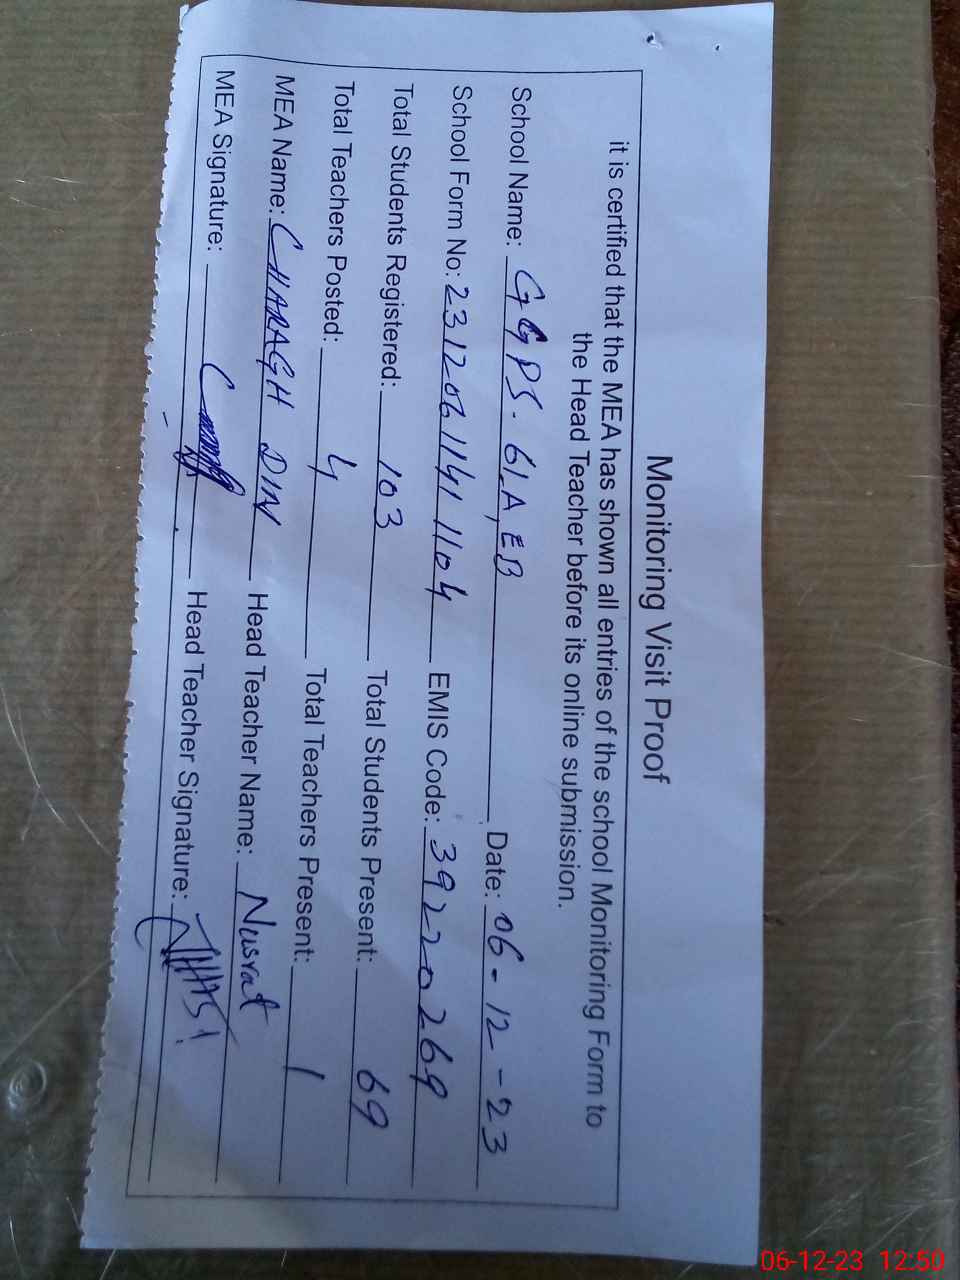 Monitoring Visit Proof
it is certified that the MEA has shown all entries of the school Monitoring Form to
the Head Teacher before its online submission.
School Name: GGPS. 61, A, EB Date: 06-12-23
School Form No: 231206114 1104 EMIS Code: 39220269
Total Students Registered: 103 Total Students Present: 69
Total Teachers Posted: 4 Total Teachers Present: 1
MEA Name: CHARAGH DIN Head Teacher Name: Nusrat
MEA Signature: Head Teacher Signature:
06-12-23 12:50